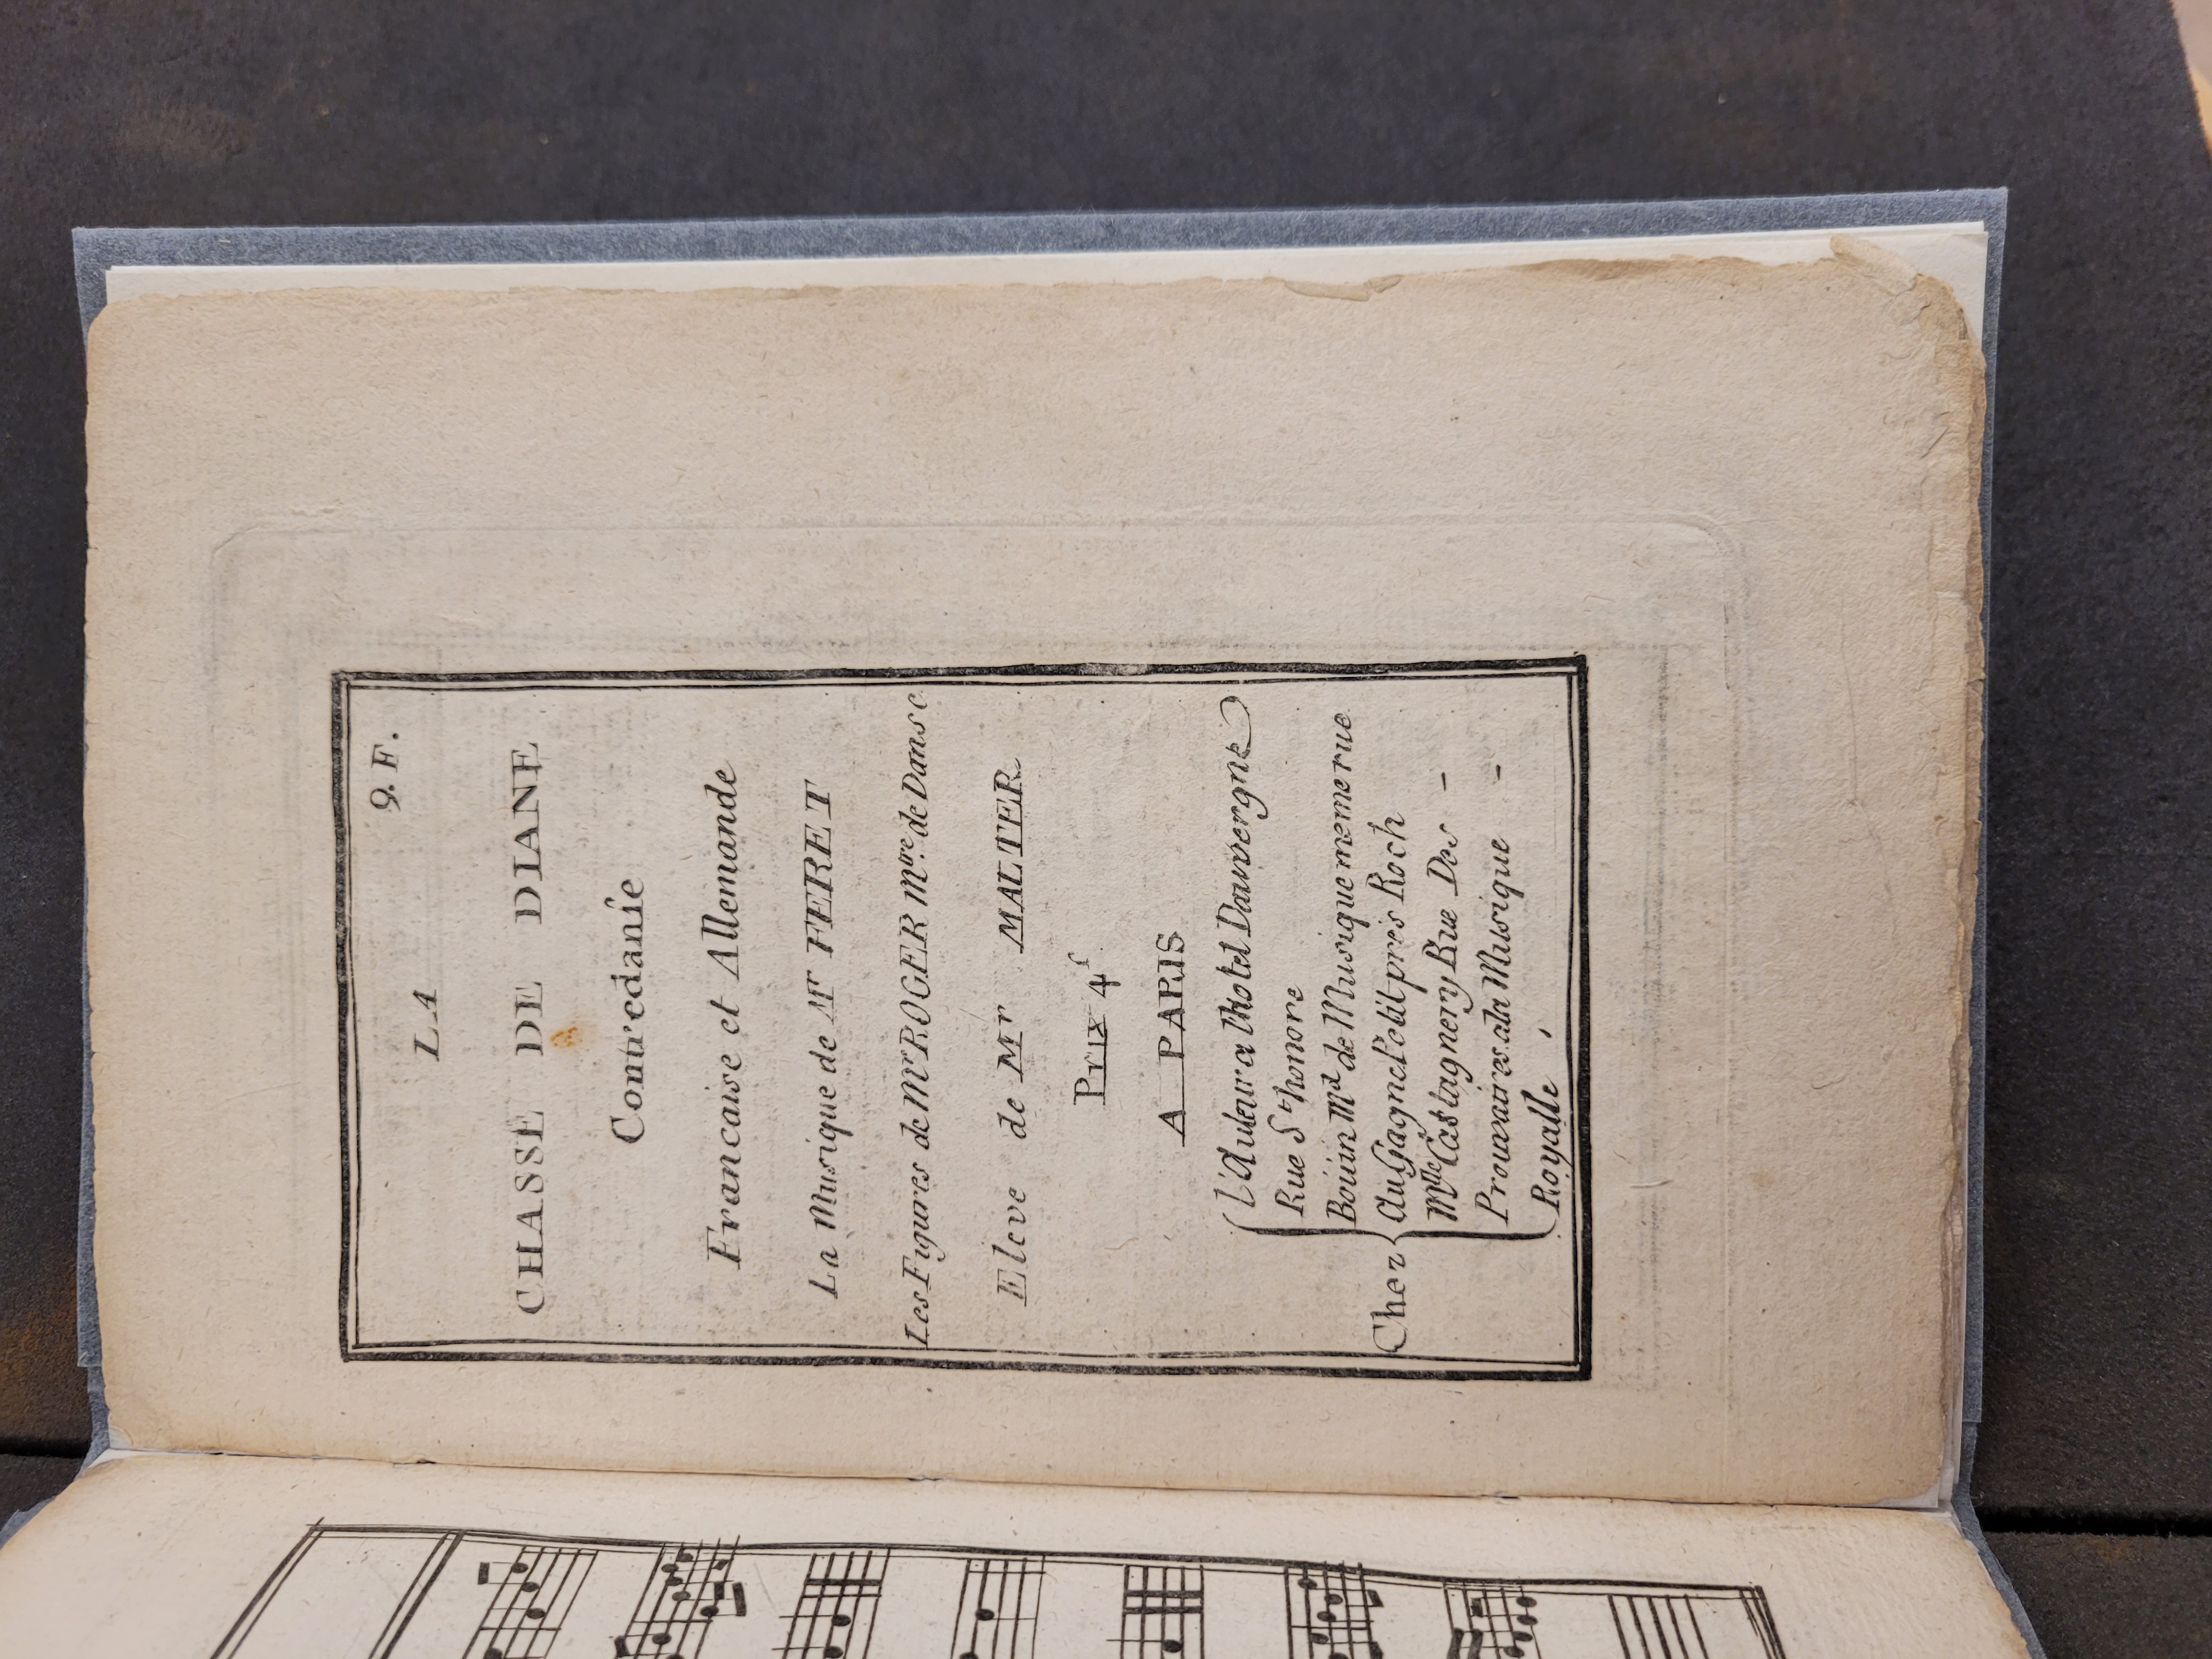 9. F.
LA
CHASSE DE DIANE
Contredanſe
Francaise et Allemande
La Musique de Mr FERET
Les Figures de Mr ROGER Mtre. de Danse
Eleve de Mr MALTER
Prix 4ſ
A PARIS
Chez
l'Auteur a l'hotel Dauvergne
Rue St honore
Bouin Md de Musique meme rue
Au Gagne Petit pres St Roch
Mlle Castagnery Rue Des -
Prouvaires a la Musique -
Royalle